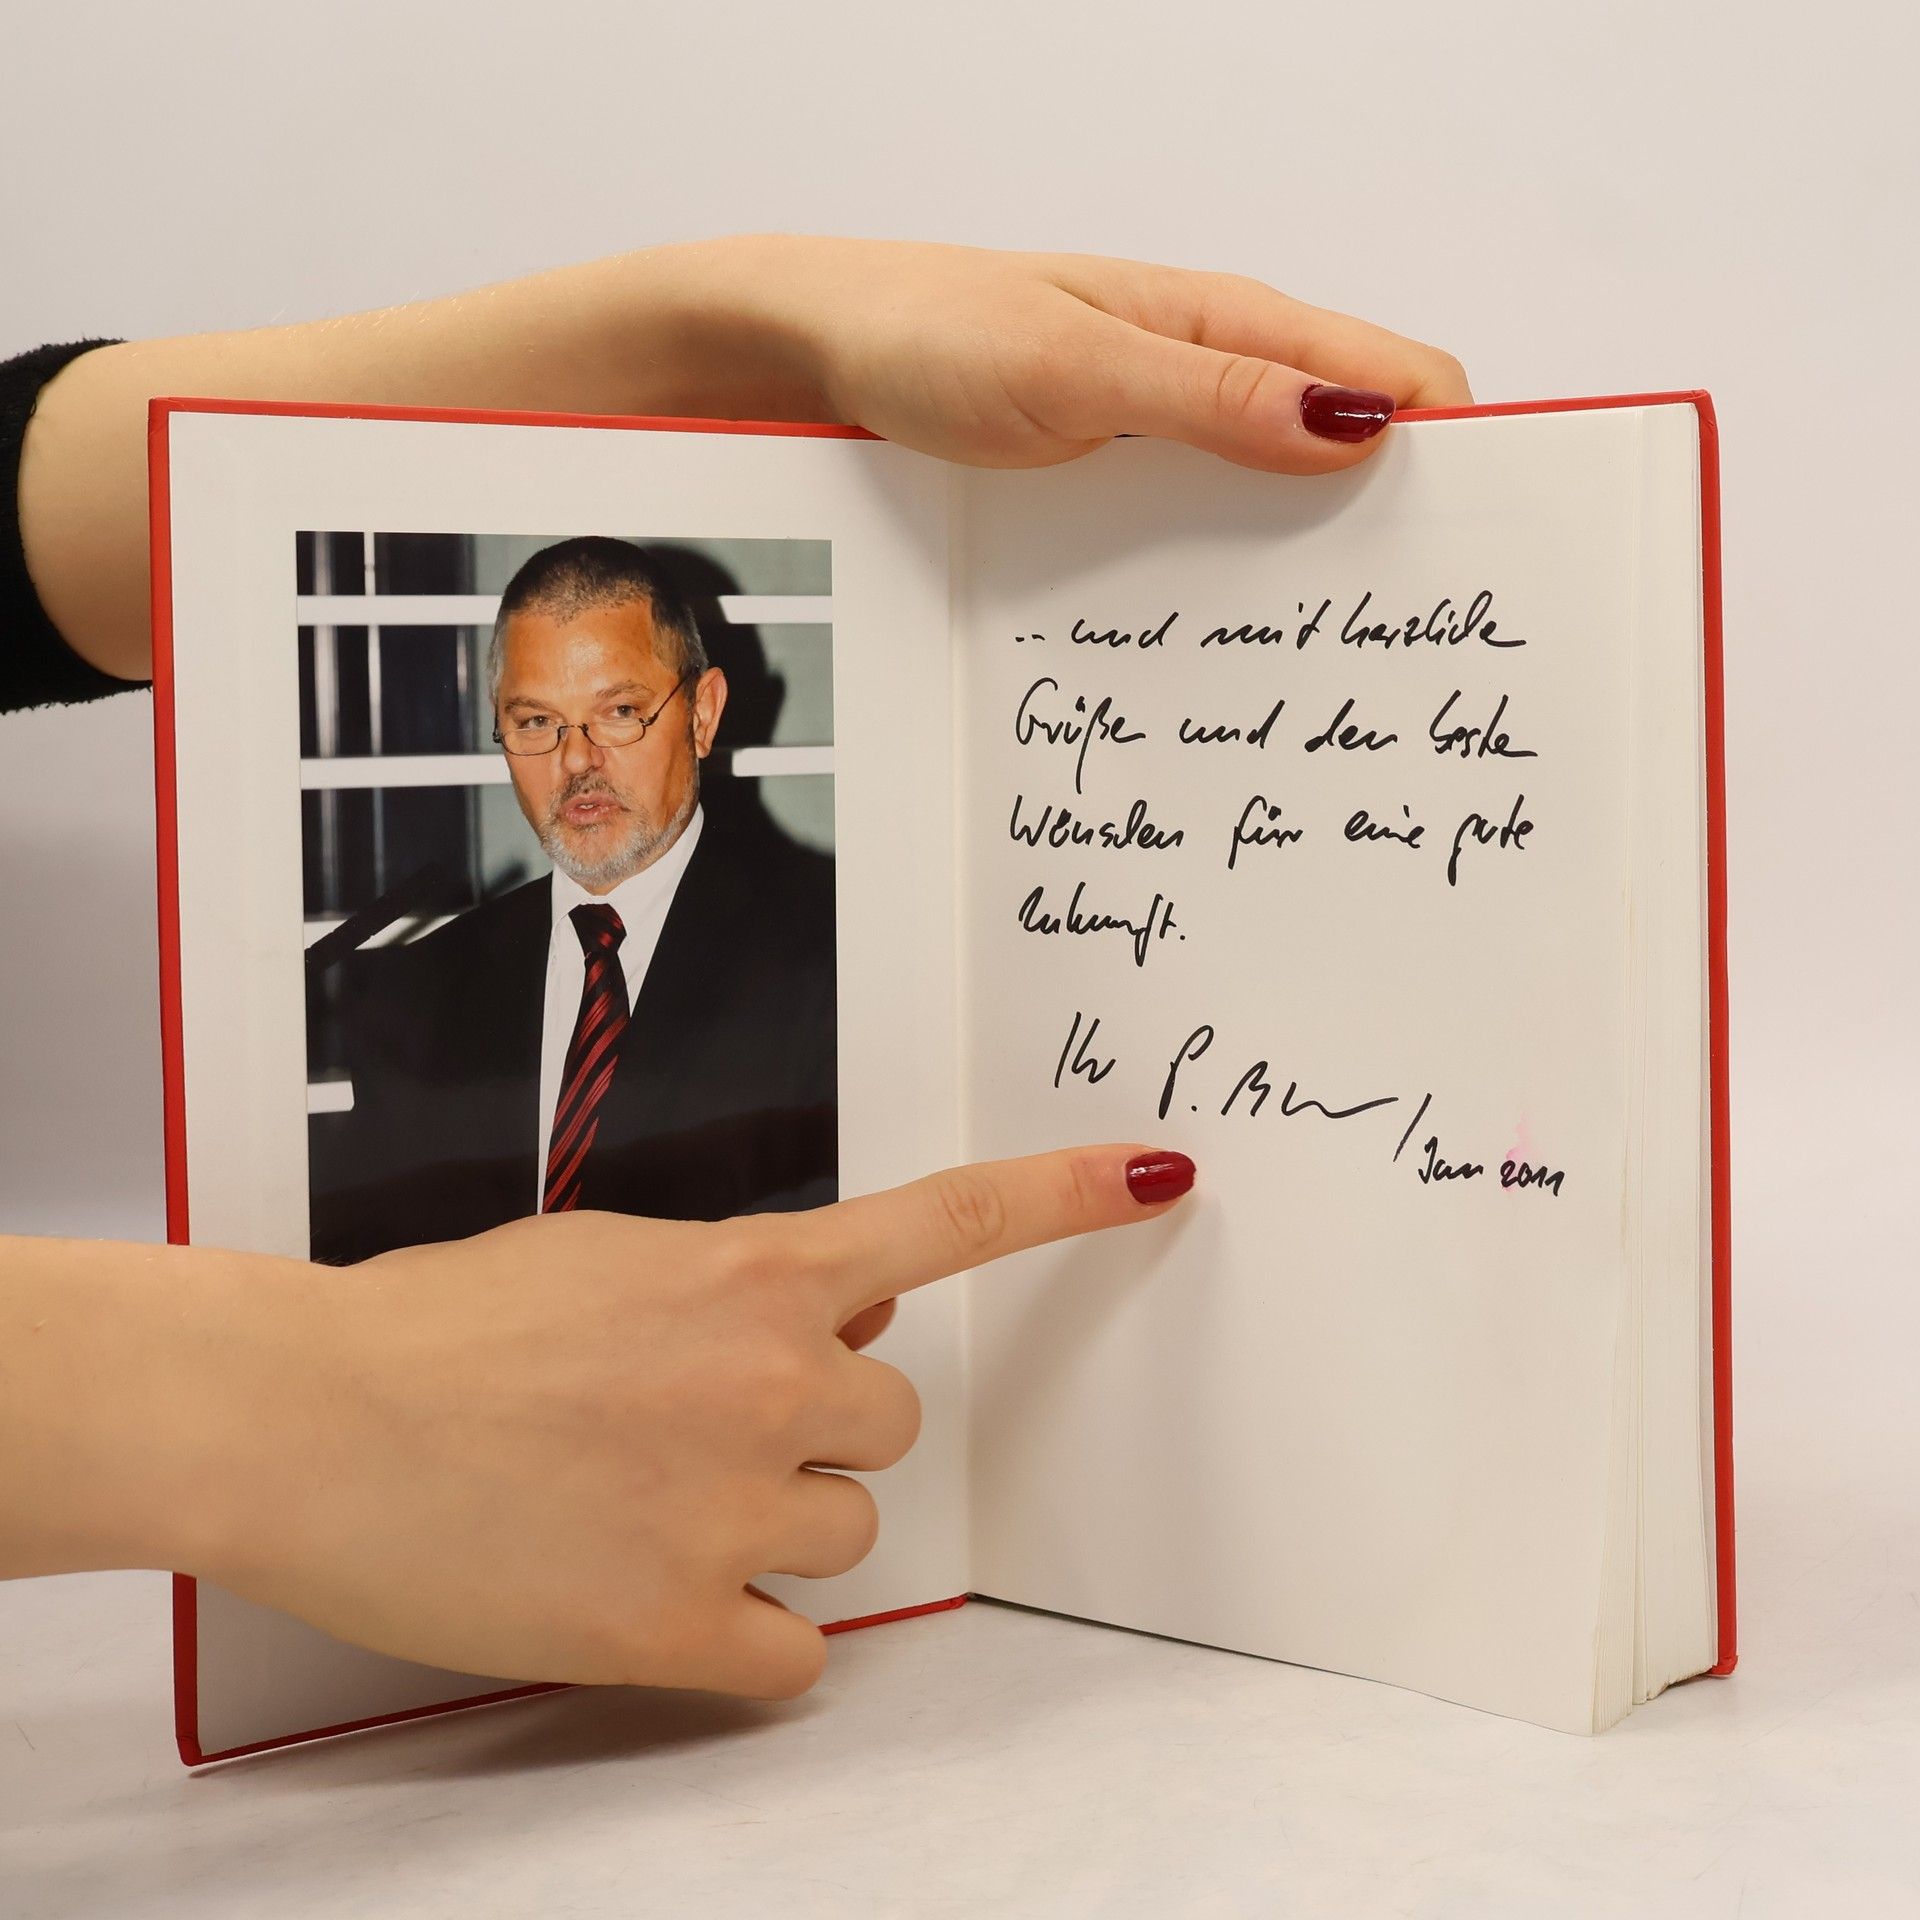 .. und mit herzliche
Grüßen und den besten
Wünschen für eine gute
Zukunft.
Ihr P.
/ Jan 2011